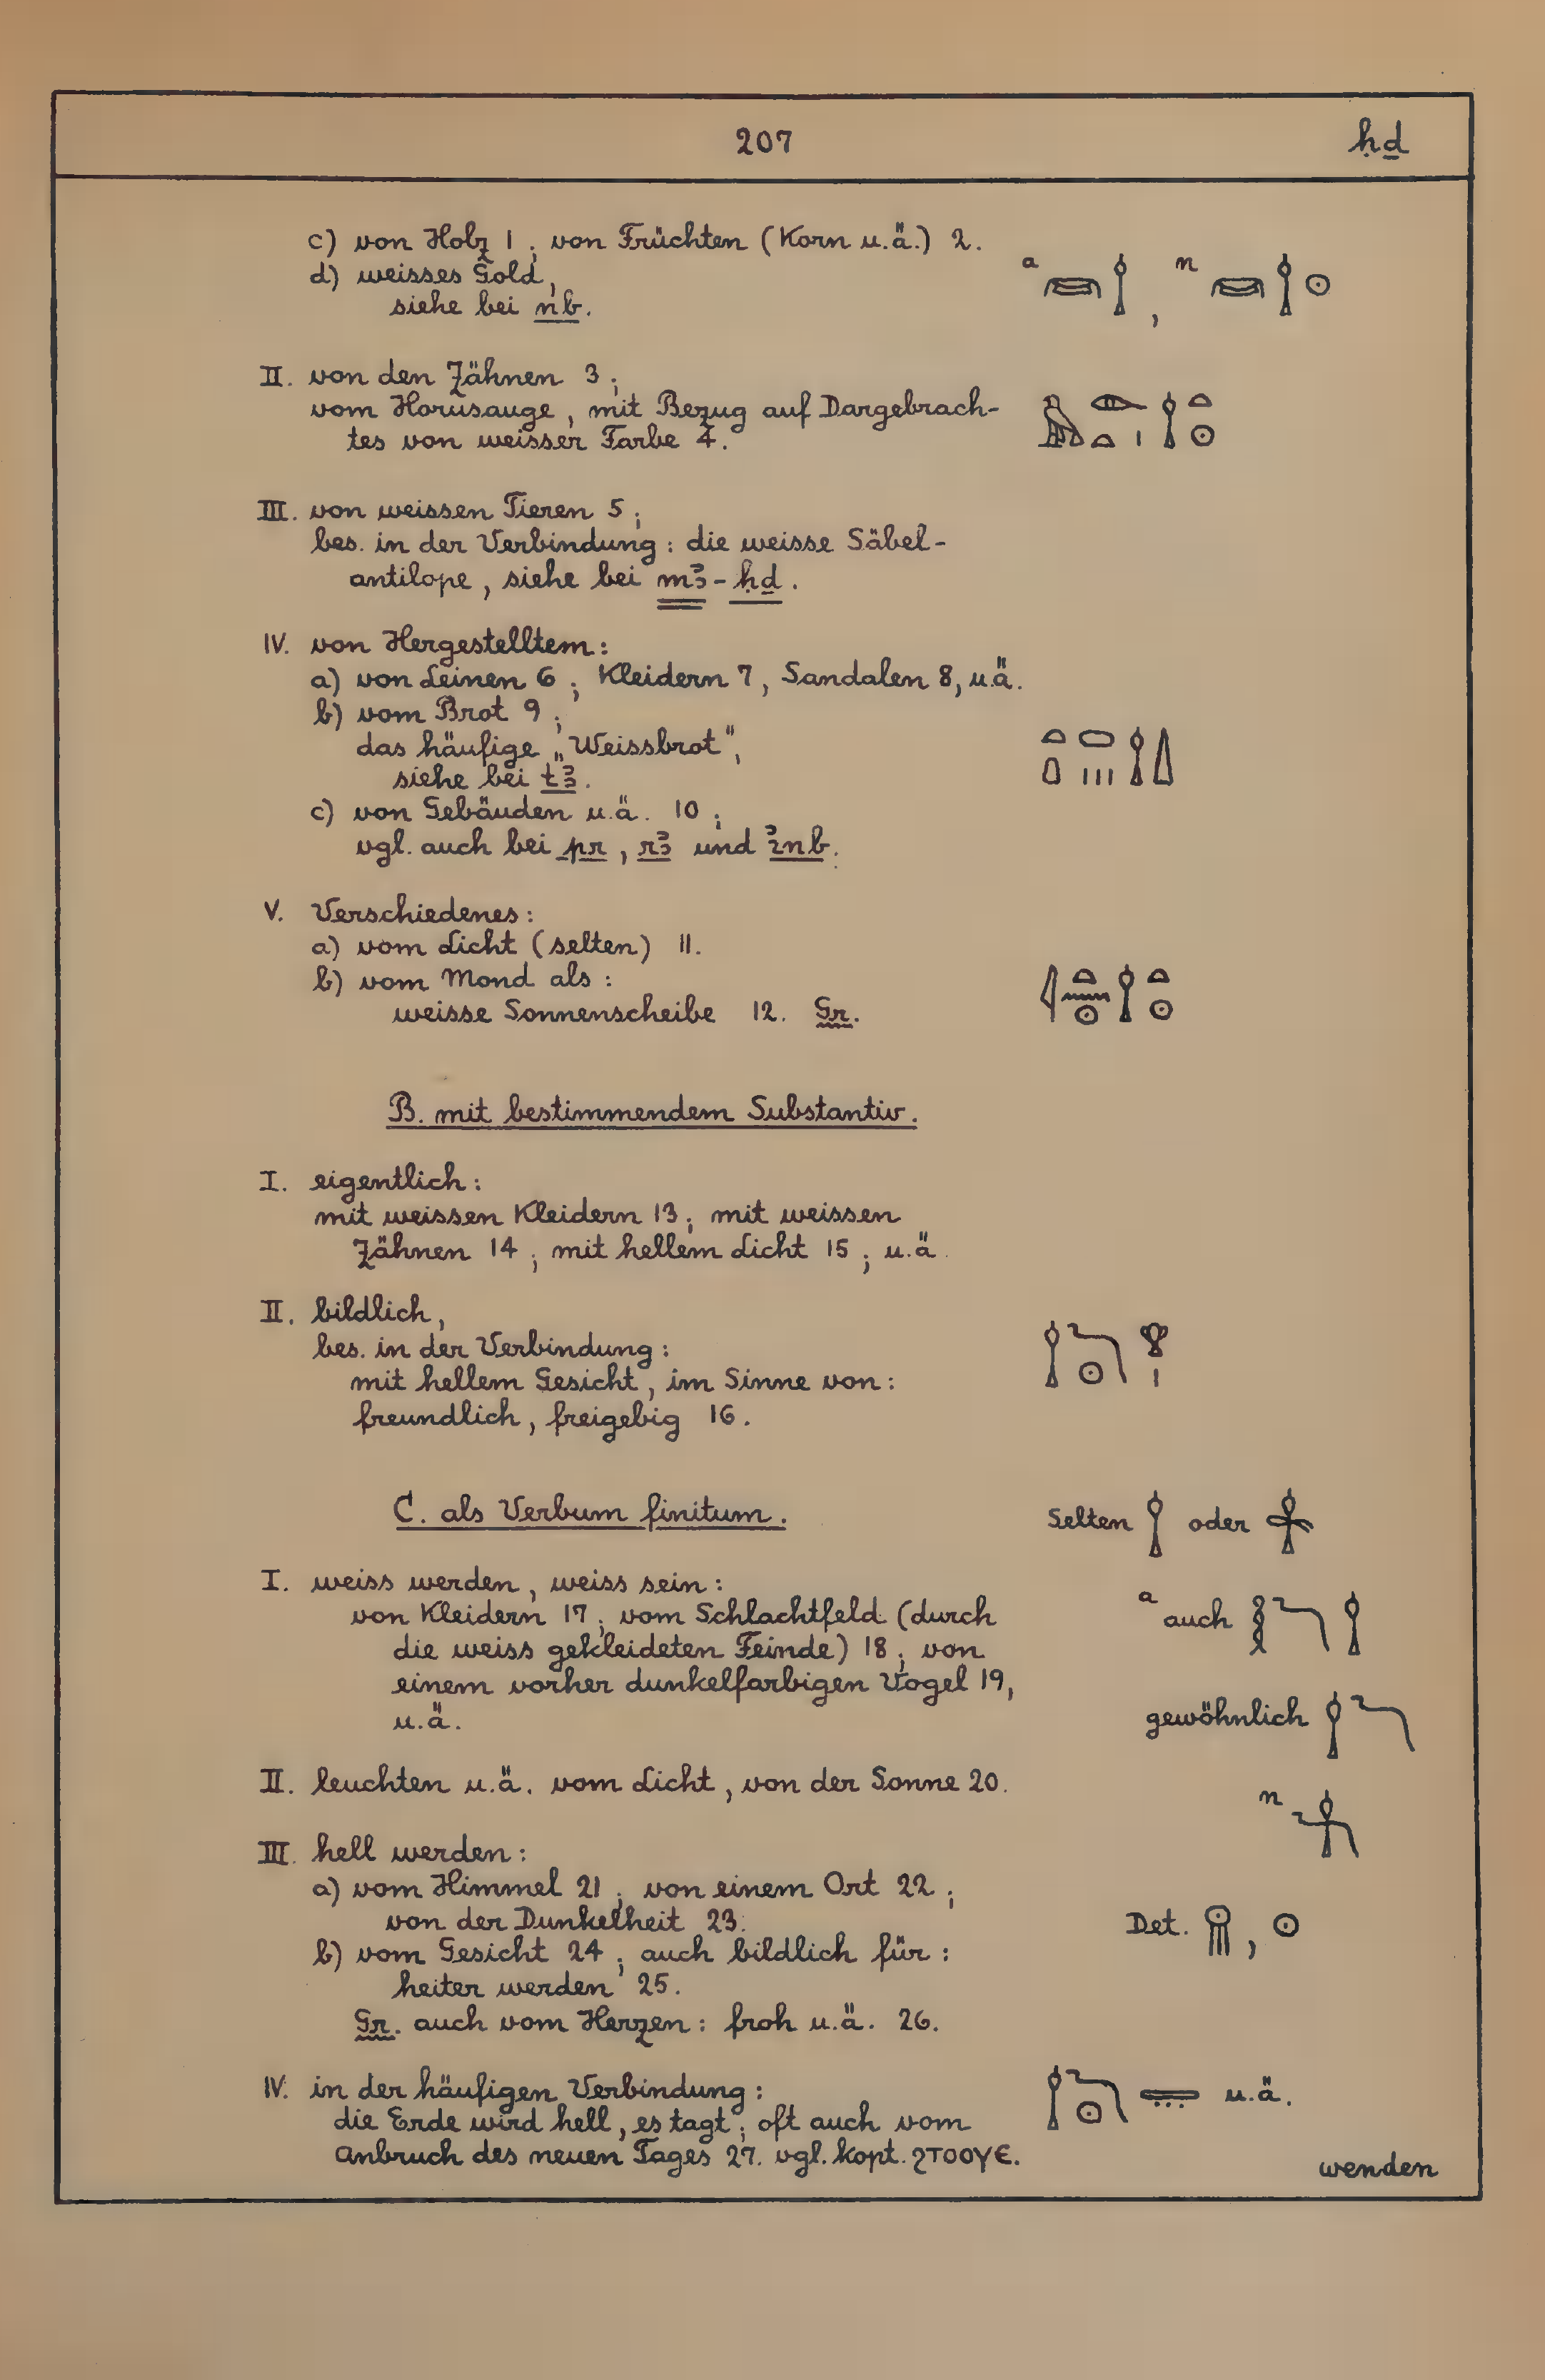 207 ḥḏ
c) von Holz 1 ; von Früchten (Korn u.ä.) 2.
d) weisses Gold,
siehe bei nb.
a 𓋞𓌉 , n 𓋞𓌉𓇳
II. von den Zähnen 3 ;
vom Horusauge, mit Bezug auf Dargebrach-
tes von weisser Farbe 4.
𓅃𓁹𓏏𓏤𓌉𓏏𓇳
III. von weissen Tieren 5 ;
bes. in der Verbindung : die weisse Säbel-
antilope, siehe bei mꜣ-ḥḏ.
IV. von Hergestelltem :
a) von Leinen 6 ; Kleidern 7, Sandalen 8, u.ä.
b) vom Brot 9 ;
das häufige „Weissbrot",
siehe bei tꜣ.
c) von Gebäuden u.ä. 10 ;
vgl. auch bei pr, rꜣ und ỉnb.
V. Verschiedenes :
a) vom Licht (selten) 11.
b) vom Mond als :
weisse Sonnenscheibe 12. Gr.
𓇋𓏏𓈖𓇳𓌉𓏏𓇳
B. mit bestimmendem Substantiv.
I. eigentlich :
mit weissen Kleidern 13 ; mit weissen
Zähnen 14 ; mit hellem Licht 15 ; u.ä.
II. bildlich,
bes. in der Verbindung :
mit hellem Gesicht, im Sinne von :
freundlich, freigebig 16.
𓌉𓆓𓇳𓁷𓏤
C. als Verbum finitum.
Selten 𓌉 oder
I. weiss werden, weiss sein :
von Kleidern 17 ; vom Schlachtfeld (durch
die weiss gekleideten Feinde) 18 ; von
einem vorher dunkelfarbigen Vogel 19,
u.ä.
a auch 𓎛𓆓𓌉
gewöhnlich 𓌉𓆓
II. leuchten u.ä. vom Licht, von der Sonne 20.
n
III. hell werden :
a) vom Himmel 21 ; von einem Ort 22 ;
von der Dunkelheit 23.
b) vom Gesicht 24 ; auch bildlich für :
heiter werden 25.
Gr. auch vom Herzen : froh u.ä. 26.
Det. 𓇶 , 𓇳
IV. in der häufigen Verbindung :
die Erde wird hell, es tagt ; oft auch vom
Anbruch des neuen Tages 27. vgl. kopt. ϩⲧⲟⲟⲩⲉ.
𓌉𓆓𓇳𓇾 u.ä.
wenden